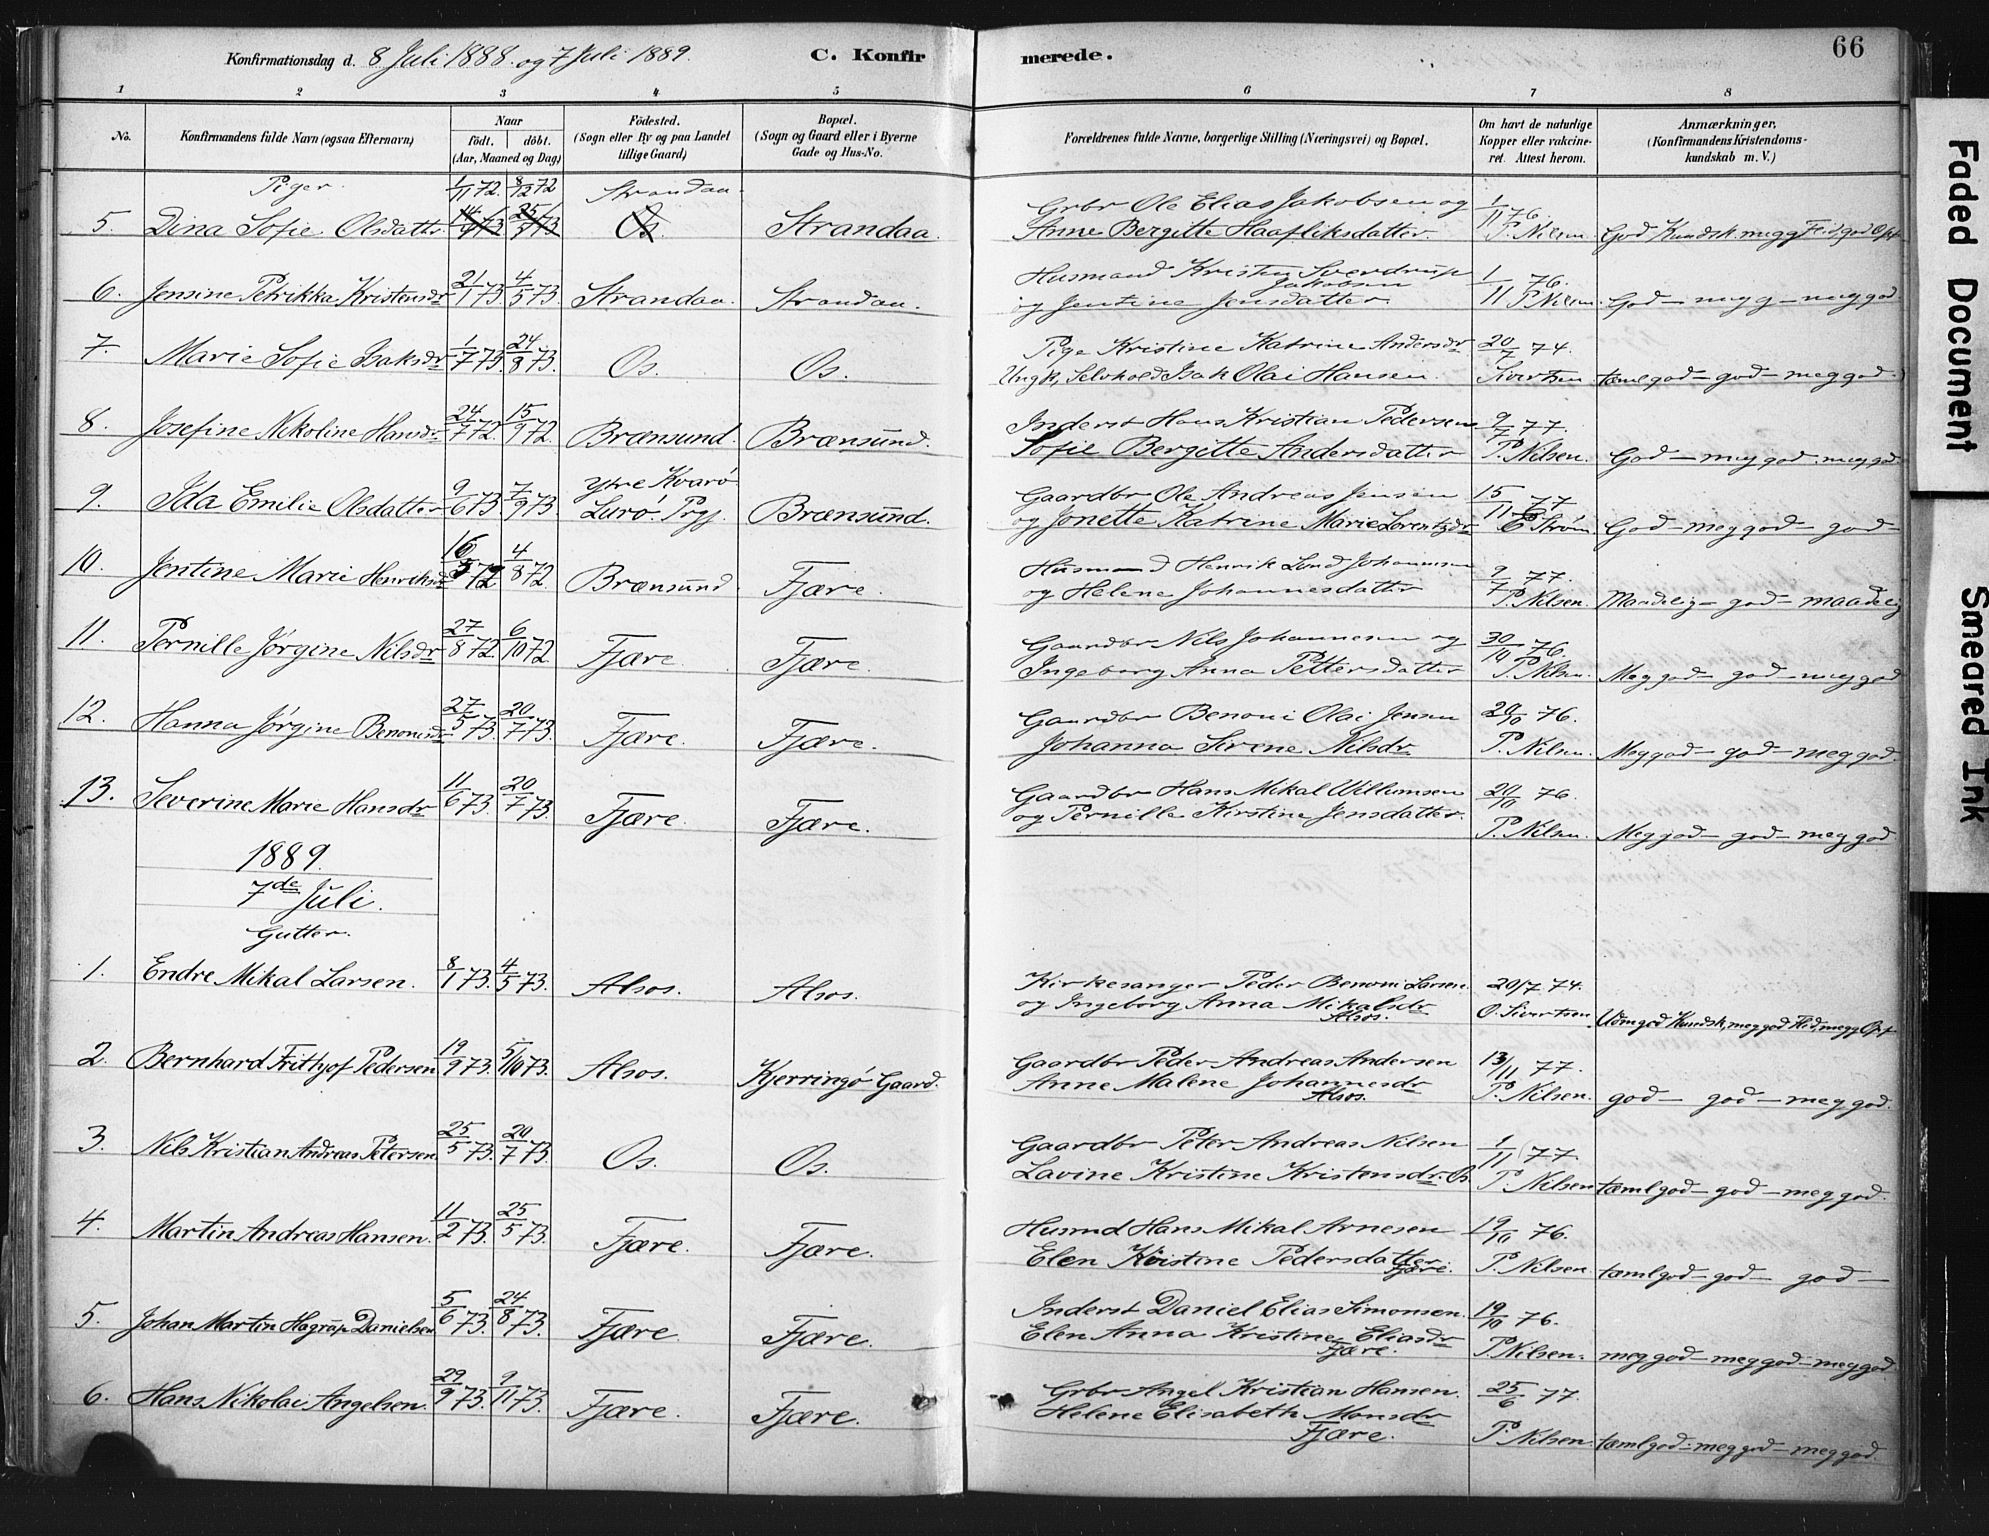 Konfirmationsdag d. 8 Juli 1888. og 7 Juli 1889.
C. Konfirmerede.
66
1 2 3 4 5 6 7 8
No.
Konfirmandens fulde Navn (ogsaa Efternavn)
Naar
født. døbt.
(Aar, Maaned og Dag)
Fødested.
(Sogn eller By og paa Landet
tillige Gaard)
Bopæl.
(Sogn og Gaard eller i Byerne
Gade og Hus-No.
Forældrenes fulde Navne, borgerlige Stilling (Næringsvei) og Bopæl.
Om havt de naturlige
Kopper eller vakcineret. Attest herom.
Anmærkninger.
(Konfirmandens Kristendomskundskab m. V.)
Piger. 1/11 72. 8/12 72 Strandaa. Grbr Ole Elias Jakobsen og 1/11 76.
5. Dina Sofie Olsdatter Os. Strandaa. Anne Bergitte Haafliksdatter P. Nilsen God Kundsk. megg Flid, god Opf
6. Jensine Petrikka Kristensdr 21/1 73. 4/5 73. Strandaa. Strandaa. Husmand Kristen Sverdrup Jakobsen 1/11 76.
og Jentine Jensdatter. P. Nilsen. God – megg – meggod.
7. Marie Sofie Isaksdr 1/7 73. 24/8 73. Os. Os. Pige Kristine Katrine Andersdr 20/7 74.
Ungk, Selvhold Isak Olai Hansen. Sivertsen tæmlgod – god – meggod.
8. Josefine Nikoline Hansdr 24/7 72. 15/9 72. Brænsund. Brænsund. Inderst Hans Kristian Pedersen 9/7 77.
Sofie Bergitte Andersdatter P. Nilsen. God – meggod. meggod.
9. Ida Emilie Olsdatter 9/6 73. 7/9 73 Ytre Kvarø Lurø Prgj. Brænsund. Gaardbr Ole Andreas Jensen 15/11 77
og Jonette Katrine Marie Lorentzdr Strøm God – meggod – god –
10. Jentine Marie Henriksdr 16/5 72 4/8 72 Brænsund. Fjære. Husmand Henrik Lund Johannsen 9/7 77.
og Helene Johannesdatter P. Nilsen. Maadelig – god – maadelig
11. Pernille Jørgine Nilsdr 27/8 72. 6/10 72 Fjære. Fjære. Gaardbr Nils Johannesen og 30/10 76.
Ingeborg Anna Pettersdatter P. Nilsen. Meggod – god – meggod
12. Hanna Jørgine Benonisdr 27/5 73. 20/7 73. Fjære. Fjære. Gaardbr Benoni Olai Jensen 20/10 76.
Johanna Sirene Nilsdr P. Nilsen. Meggod – god – meggod.
13. Severine Marie Hansdr 11/6 73. 20/7 73. Fjære. Fjære. Gaardbr Hans Mikal Willumsen 20/10 76.
og Pernille Kirstine Jensdatter. P. Nilsen. Meggod – god – meggod
1889.
7de Juli.
Gutter.
1. Endre Mikal Larsen. 8/1 73. 4/5 73. Alsos. Alsos. Kirkesanger Peder Benoni Larsen. 20/7 74.
og Ingeborg Anna Mikalsdr Alsos. O. Sivertsen Udmgod Kundsk, meggod Flid, megg Opf
2. Bernhard Frithjof Pedersen 19/9 73. 5/10 73. Alsos. Kjerringø Gaard. Gaardbr Peder Andreas Andersen 13/11 77.
Anne Malene Johannesdr Alsos. P. Nilsen. god – god – meggod.
3. Nils Kristian Andreas Petersen. 25/5 73. 20/7 73. Os. Os. Gaardbr Peter Andreas Nilsen 1/11 77.
Lavine Kristine Kristensdr. Os P. Nilsen tæmlgod – god – meggod.
4. Martin Andreas Hansen. 11/2 73. 25/5 73. Fjære. Fjære. Husmd Hans Mikal Arnesen 19/10 76.
Elen Kristine Pedersdatter Fjære. P. Nilsen. tæmlgod – god – god –
5. Johan Martin Hagrup Danielsen 5/6 73. 24/8 73. Fjære. Fjære. Inderst Daniel Elias Simonsen. 19/10 76.
Elen Anna Kristine Eliasdr Fjære. P. Nilsen. meggod – meggod – meggod
6. Hans Nikolai Angelsen. 29/9 73. 9/11 73. Fjære. Fjære. Grbr Angel Kristian Hansen. 25/6 77.
Helene Elisabeth Monsdr Fjære. P. Nilsen tæmlgod – meggod – meggod.
Faded Document
Smeared Ink